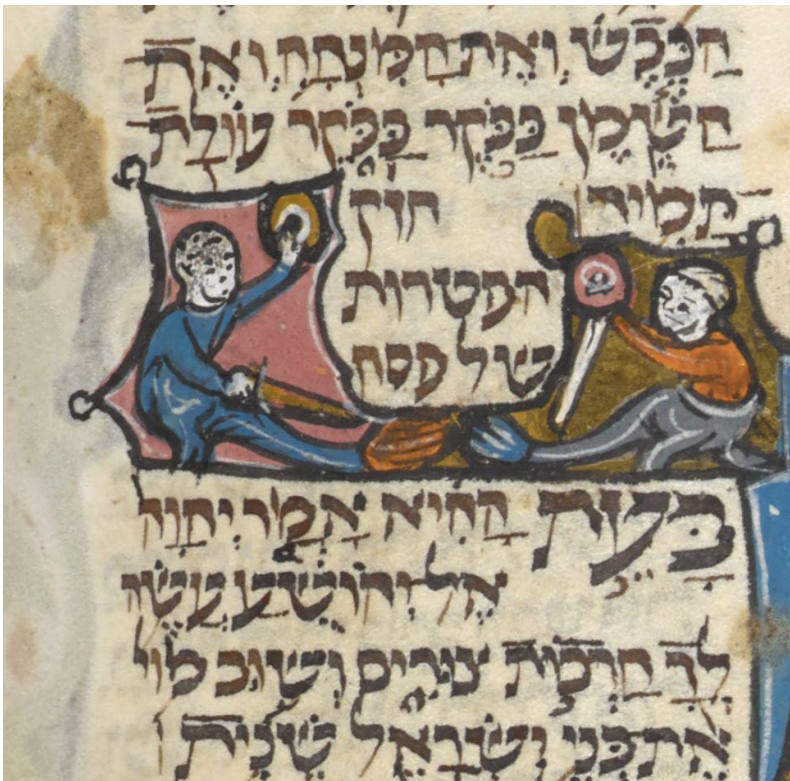 הַכֶּבֶשׂ וְאֶת הַמִּנְחָה וְאֶת
הַשֶּׁמֶן בַּבֹּקֶר בַּבֹּקֶר עוֹלַת
תָּמִיד חזק
הפטרות
של פסח
בָּעֵת הַהִיא אָמַר יְהוָה
אֶל יְהוֹשֻׁעַ עֲשֵׂה
לְךָ חַרְבוֹת צוּרִים וְשׁוּב מוֹל
אֶת בְּנֵי יִשְׂרָאֵל שֵׁנִית